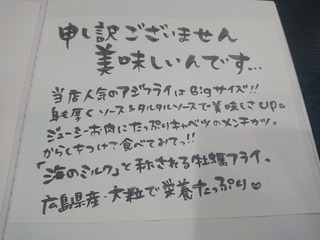 申し訳ございません
美味しいんです…
当店人気のアジフライはBigサイズ!!
身も厚くソース&タルタルソースで美味しさup。
ジューシーお肉にたっぷりキャベツのメンチカツ。
からしをつけて食べてみてっ!!
「海のミルク」と称される牡蠣フライ。
広島県産・大粒で栄養たっぷり♡